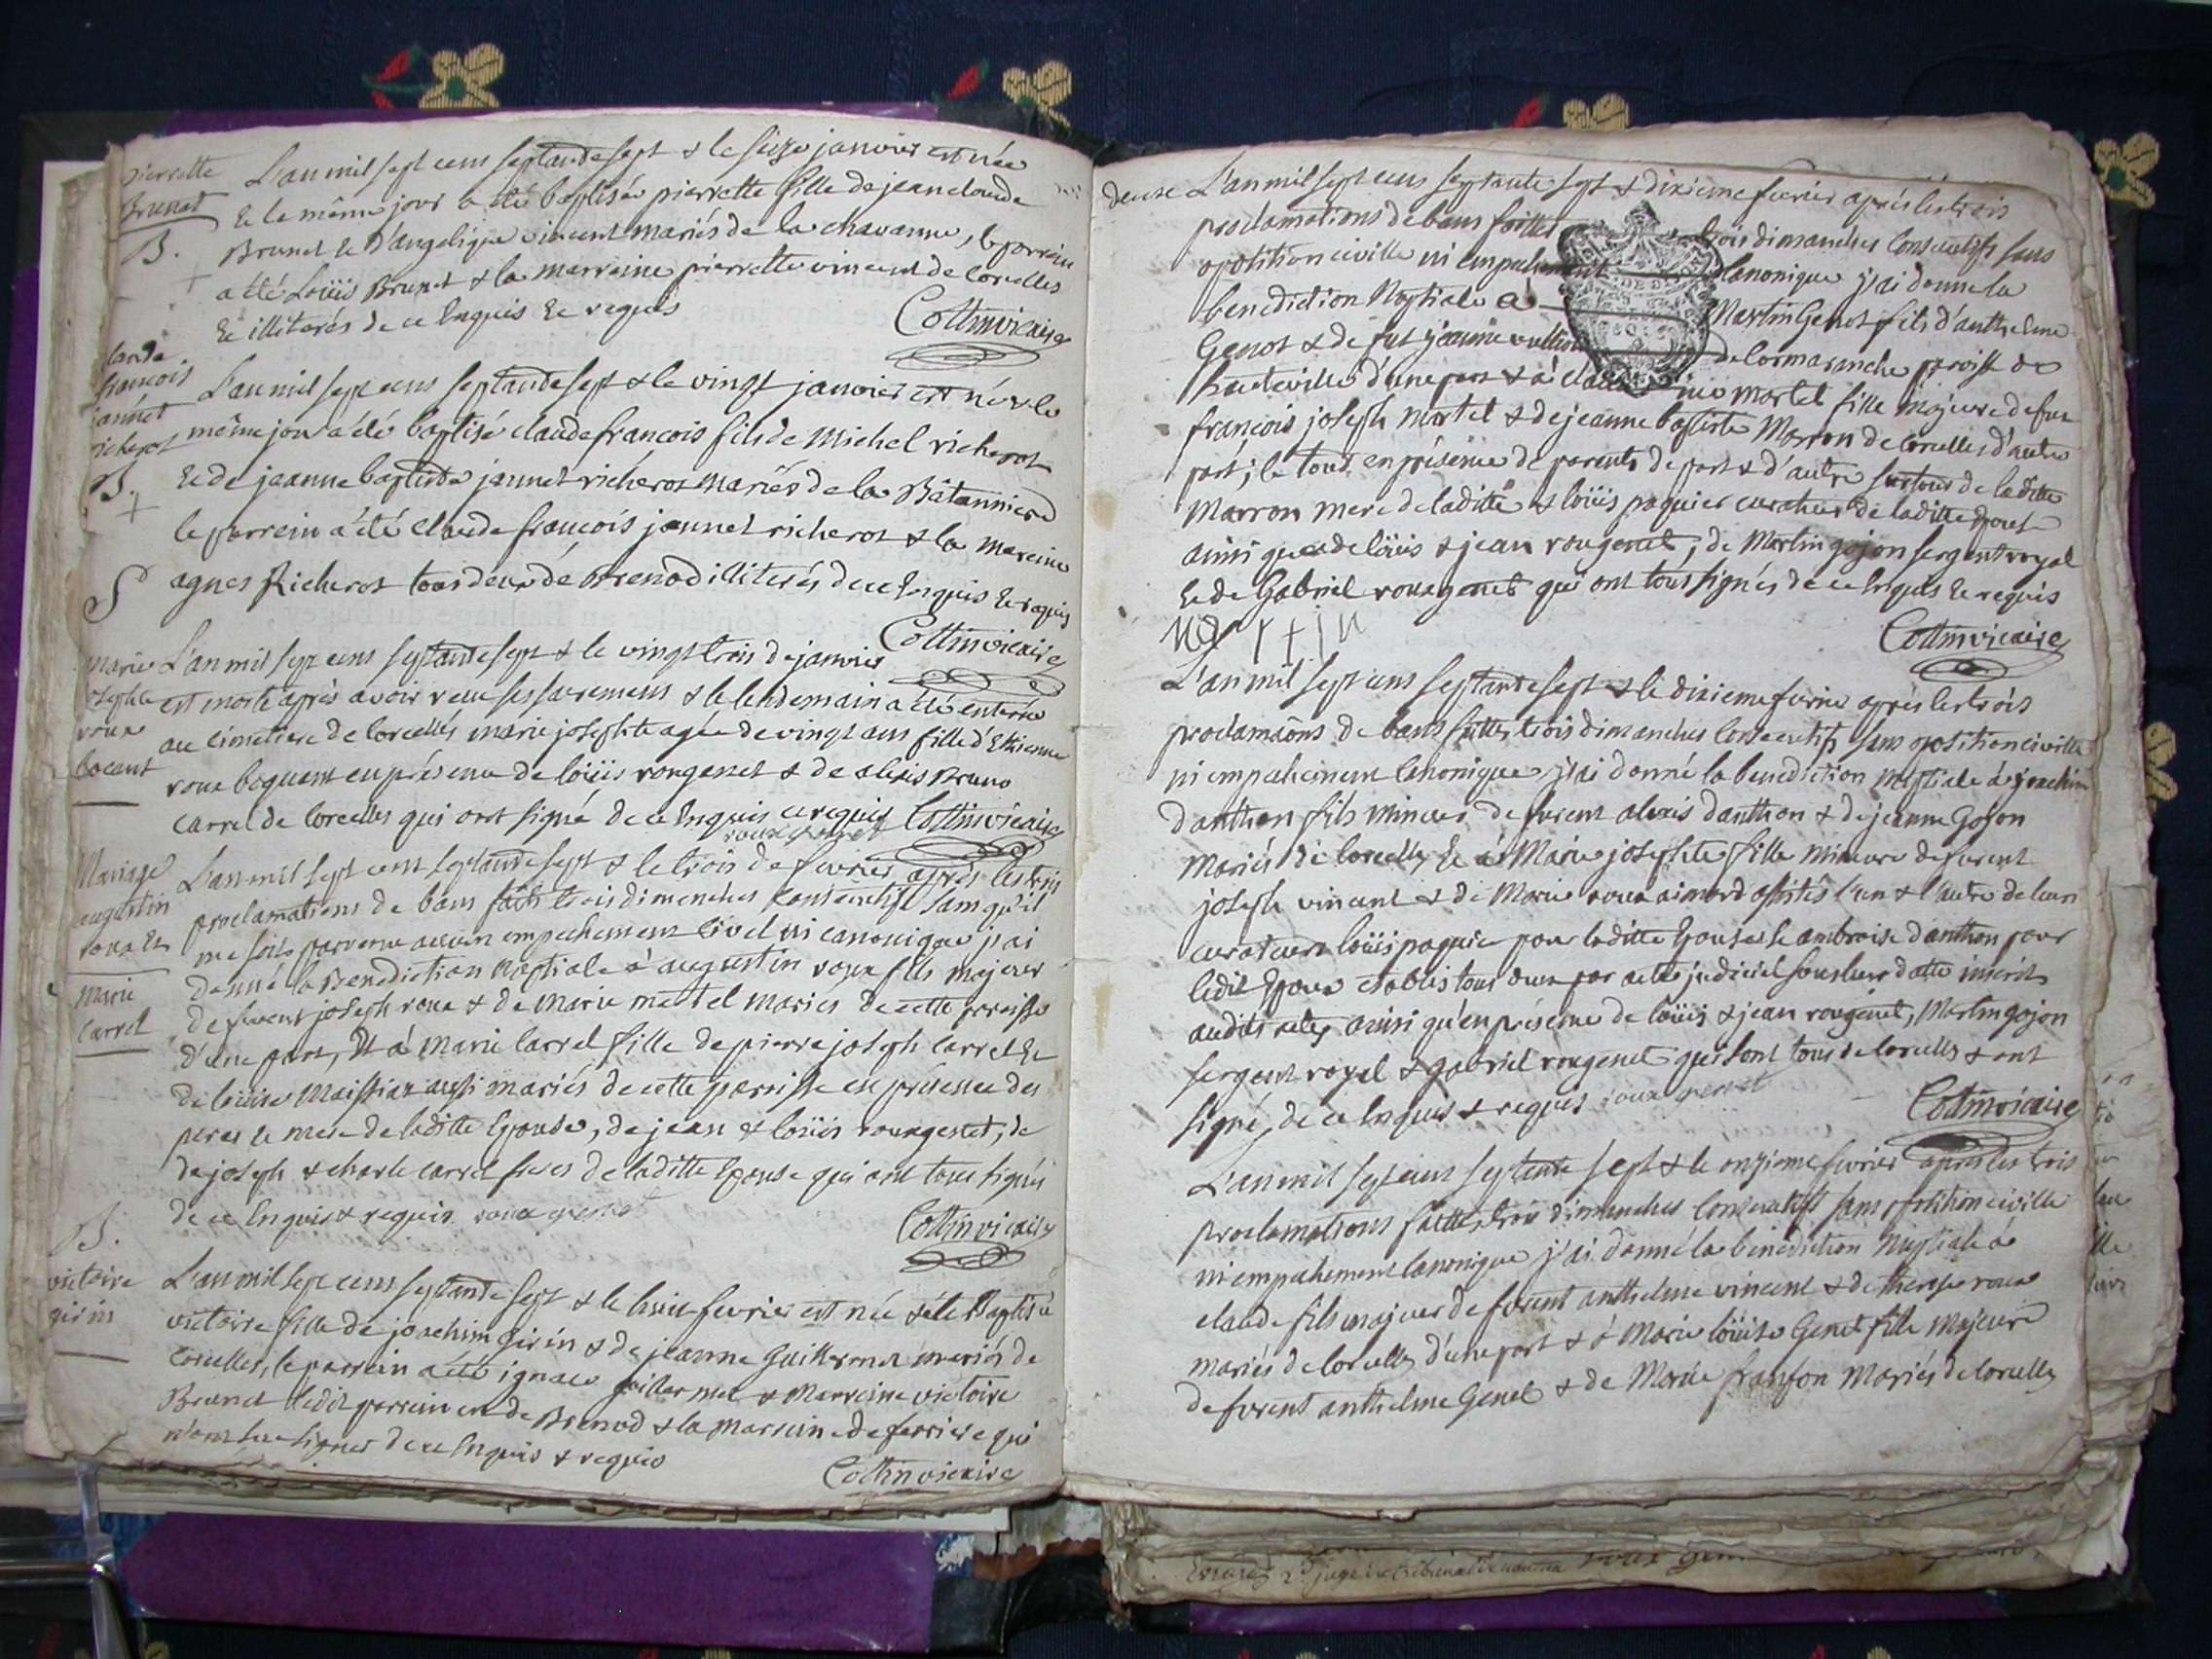 pierrette
Brunet
B.
L'an mil sept cens septande sept & le seize janvier est née
& le même jour a été baptisée pierrette fille de jean claude
Brunet & d'angelique vincent mariés de la chavanne, le parrein
a été Loüis Brunet & la marreine pierrette vincent de corcelles
& illiterés de ce Enquis & requis
Cottin vicaire
claude
francois
jannet
richerot
B.
L'an mil sept cens septande sept & le vingt janvier est né & le
même jour a été baptisé claude francois fils de Michel richerot
& de jeanne baptiste jannet richerot mariés de la Bâtannière
le parrein a été claude françois jannet richerot & la mareine
agnes Richerot tous deux de Brenod illiterés de ce Enquis & requis
Cottin vicaire
S
marie
josephte
roux
bocant
L'an mil sept cens septande sept & le vingt trois de janvier
est morte après avoir reçu ses sacremens & le lendemain a été enterée
au cimetiere de corcelles marie josephte agée de vingt ans fille d'Ettienne
roux boquant en présence de loüis rougenet & de alexis Bruno
carrel de corcelles qui ont signé de ce Enquis & requis Cottin vicaire
roux genet
Mariage
augustin
roux &
marie
Carrel
L'an mil sept cent septande sept & le trois de fevrier après les trois
proclamations de bans faits trois dimenches consecutifs sans qu'il
me soit parvenu aucun empechement civel ni canonique j'ai
donné la Benediction Nuptiale a augustin roux fils majeur
de furent joseph roux & de marie martel mariés de cette parroisse
d'une part, Et à Marie Carrel fille de pierre joseph carrel &
de loüise Maissiat aussi mariés de cette parroisse en présence des
peres & mere de laditte Epouse, de jean & loüis rougenet, de
de joseph & charle carrel freres de laditte Epouse qui ont tous signés
de ce Enquis & requis roux genet
Cottin vicaire
B.
victoire
girin
L'an mil sept cens septande sept & le huit fevrier est née & été Baptisée
victoire fille de joachim girin & de jeanne Guillermet mariés de
corcelles, le parrein a été ignace guillermet & Marreine victoire
Brunet ledit parrein est de Brenod & la marreine de ferriere qui
n'ont sue signer de ce Enquis & requis
Cottin vicaire
deuse L'an mil sept cens septante sept & dixieme fevrier après les trois
proclamations de bans faittes trois dimanches consecutifs sans
opotition civille ni empechement Canonique j'ai donné la
benediction Nuptiale à Martin Genot fils d'anthelme
Genot & de fut jeanne de Cormaranche paroisse de
hauteville d'une part & à martel fille majeure de fut
françois joseph martel & de jeanne baptiste Marron de corcelles d'autre
part, le tout en présence de parents de part & d'autre surtout de laditte
Marron mere de laditte & loüis paquier curateur de laditte Epouse
ainsi que de loüis & jean rougenet, de Martin gojon sergent royal
& de Gabriel rougenet qui ont tous signés de ce Enquis & requis
Cottin vicaire
L'an mil sept cens septande sept & le dixieme fevrier après les trois
proclamaõns de bans faittes trois dimanches consecutifs sans opotition civille
ni empechement canonique j'ai donné la benediction nuptiale à joachim
danthon fils mineur de furent alexis danthon & de jeanne Gojon
mariés de corcelles & à Marie josephte fille mineure de furent
joseph vincent & de Marie roux aimard assistés l'un & l'autre de leurs
curateurs loüis paquier pour laditte Epouse & ambroise danthon pour
ledit Epoux etablis tous deux par acte judiciel sous leur datte inserés
audits actes ainsi qu'en présence de loüis & jean rougenet, Martin gojon
sergent royal & gabriel rougenet qui sont tous de corcelles & ont
signé, de ce Enquis & requis roux genet
Cottin vicaire
L'an mil sept cens septente sept & le onzieme fevrier après les trois
proclamations faittes trois dimanches consecutifs sans opotition civille
ni empechement canonique j'ai donné la benediction Nuptiale à
claude fils majeur de furent anthelme vincent & de therese roux
mariés de corcelles d'une part & à Marie loüise Genet fille majeure
de furent anthelme Genet & de Marie françon Mariés de corcelles